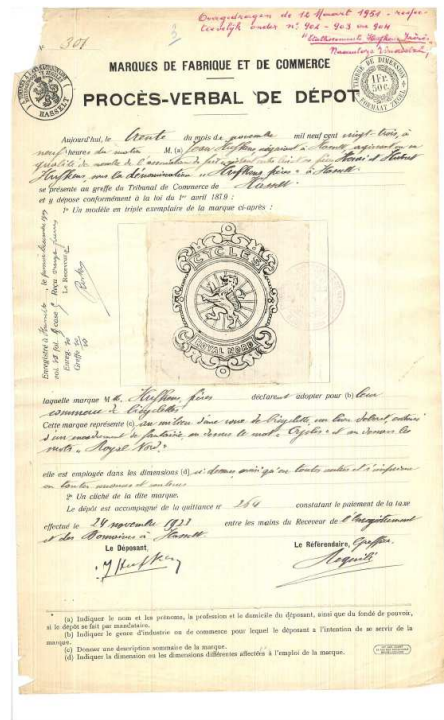 Overgedragen de 12 Maart 1951 - respec-
tievelijk onder n°. 902 - 903 en 904
"Etablissements Huysmans Frères"
Naamloze Vennootschap
N° 301
MARQUES DE FABRIQUE ET DE COMMERCE
HASSELT
TIMBRE DE DIMENSION
1 Fr. 50 c.
FORMAAT ZEGEL
PROCÈS-VERBAL DE DÉPOT
Aujourd'hui, le trente du mois de novembre mil neuf cent vingt trois, à
neuf heures du matin M. (a) négociant à Hasselt, agissant en
qualité de membre de l'association de fait existant entre lui et son frère
frères" à Hasselt
se présente au greffe du Tribunal de Commerce de Hasselt
et y dépose conformément à la loi du 1er avril 1879 :
1° Un modèle en triple exemplaire de la marque ci-après :
CYCLES
ROYAL NORD
Enregistré à Hasselt
Le Receveur
laquelle marque M M. frères déclarent adopter pour (b) leur
commerce de bicyclettes
Cette marque représente (c) au milieu d'une roue de bicyclette, un lion debout, entouré
d'un encadrement de fantaisie, en dessus le mot "Cycles" et en dessous les
mots "Royal Nord"
elle est employée dans les dimensions (d) ci-dessus ainsi qu'en toutes autres et s'imprime
en toutes nuances et couleurs
2° Un cliché de la dite marque.
Le dépôt est accompagné de la quittance n° 264 constatant le paiement de la taxe
effectué le 24 novembre 1923 entre les mains du Receveur de l'Enregistrement
et des Domaines à Hasselt
Le Déposant, Le Référendaire, Greffier
(a) Indiquer le nom et les prénoms, la profession et le domicile du déposant, ainsi que du fondé de pouvoir,
si le dépôt se fait par mandataire.
(b) Indiquer le genre d'industrie ou de commerce pour lequel le déposant a l'intention de se servir de la
marque.
(c) Donner une description sommaire de la marque.
(d) Indiquer la dimension ou les dimensions différentes affectées à l'emploi de la marque.